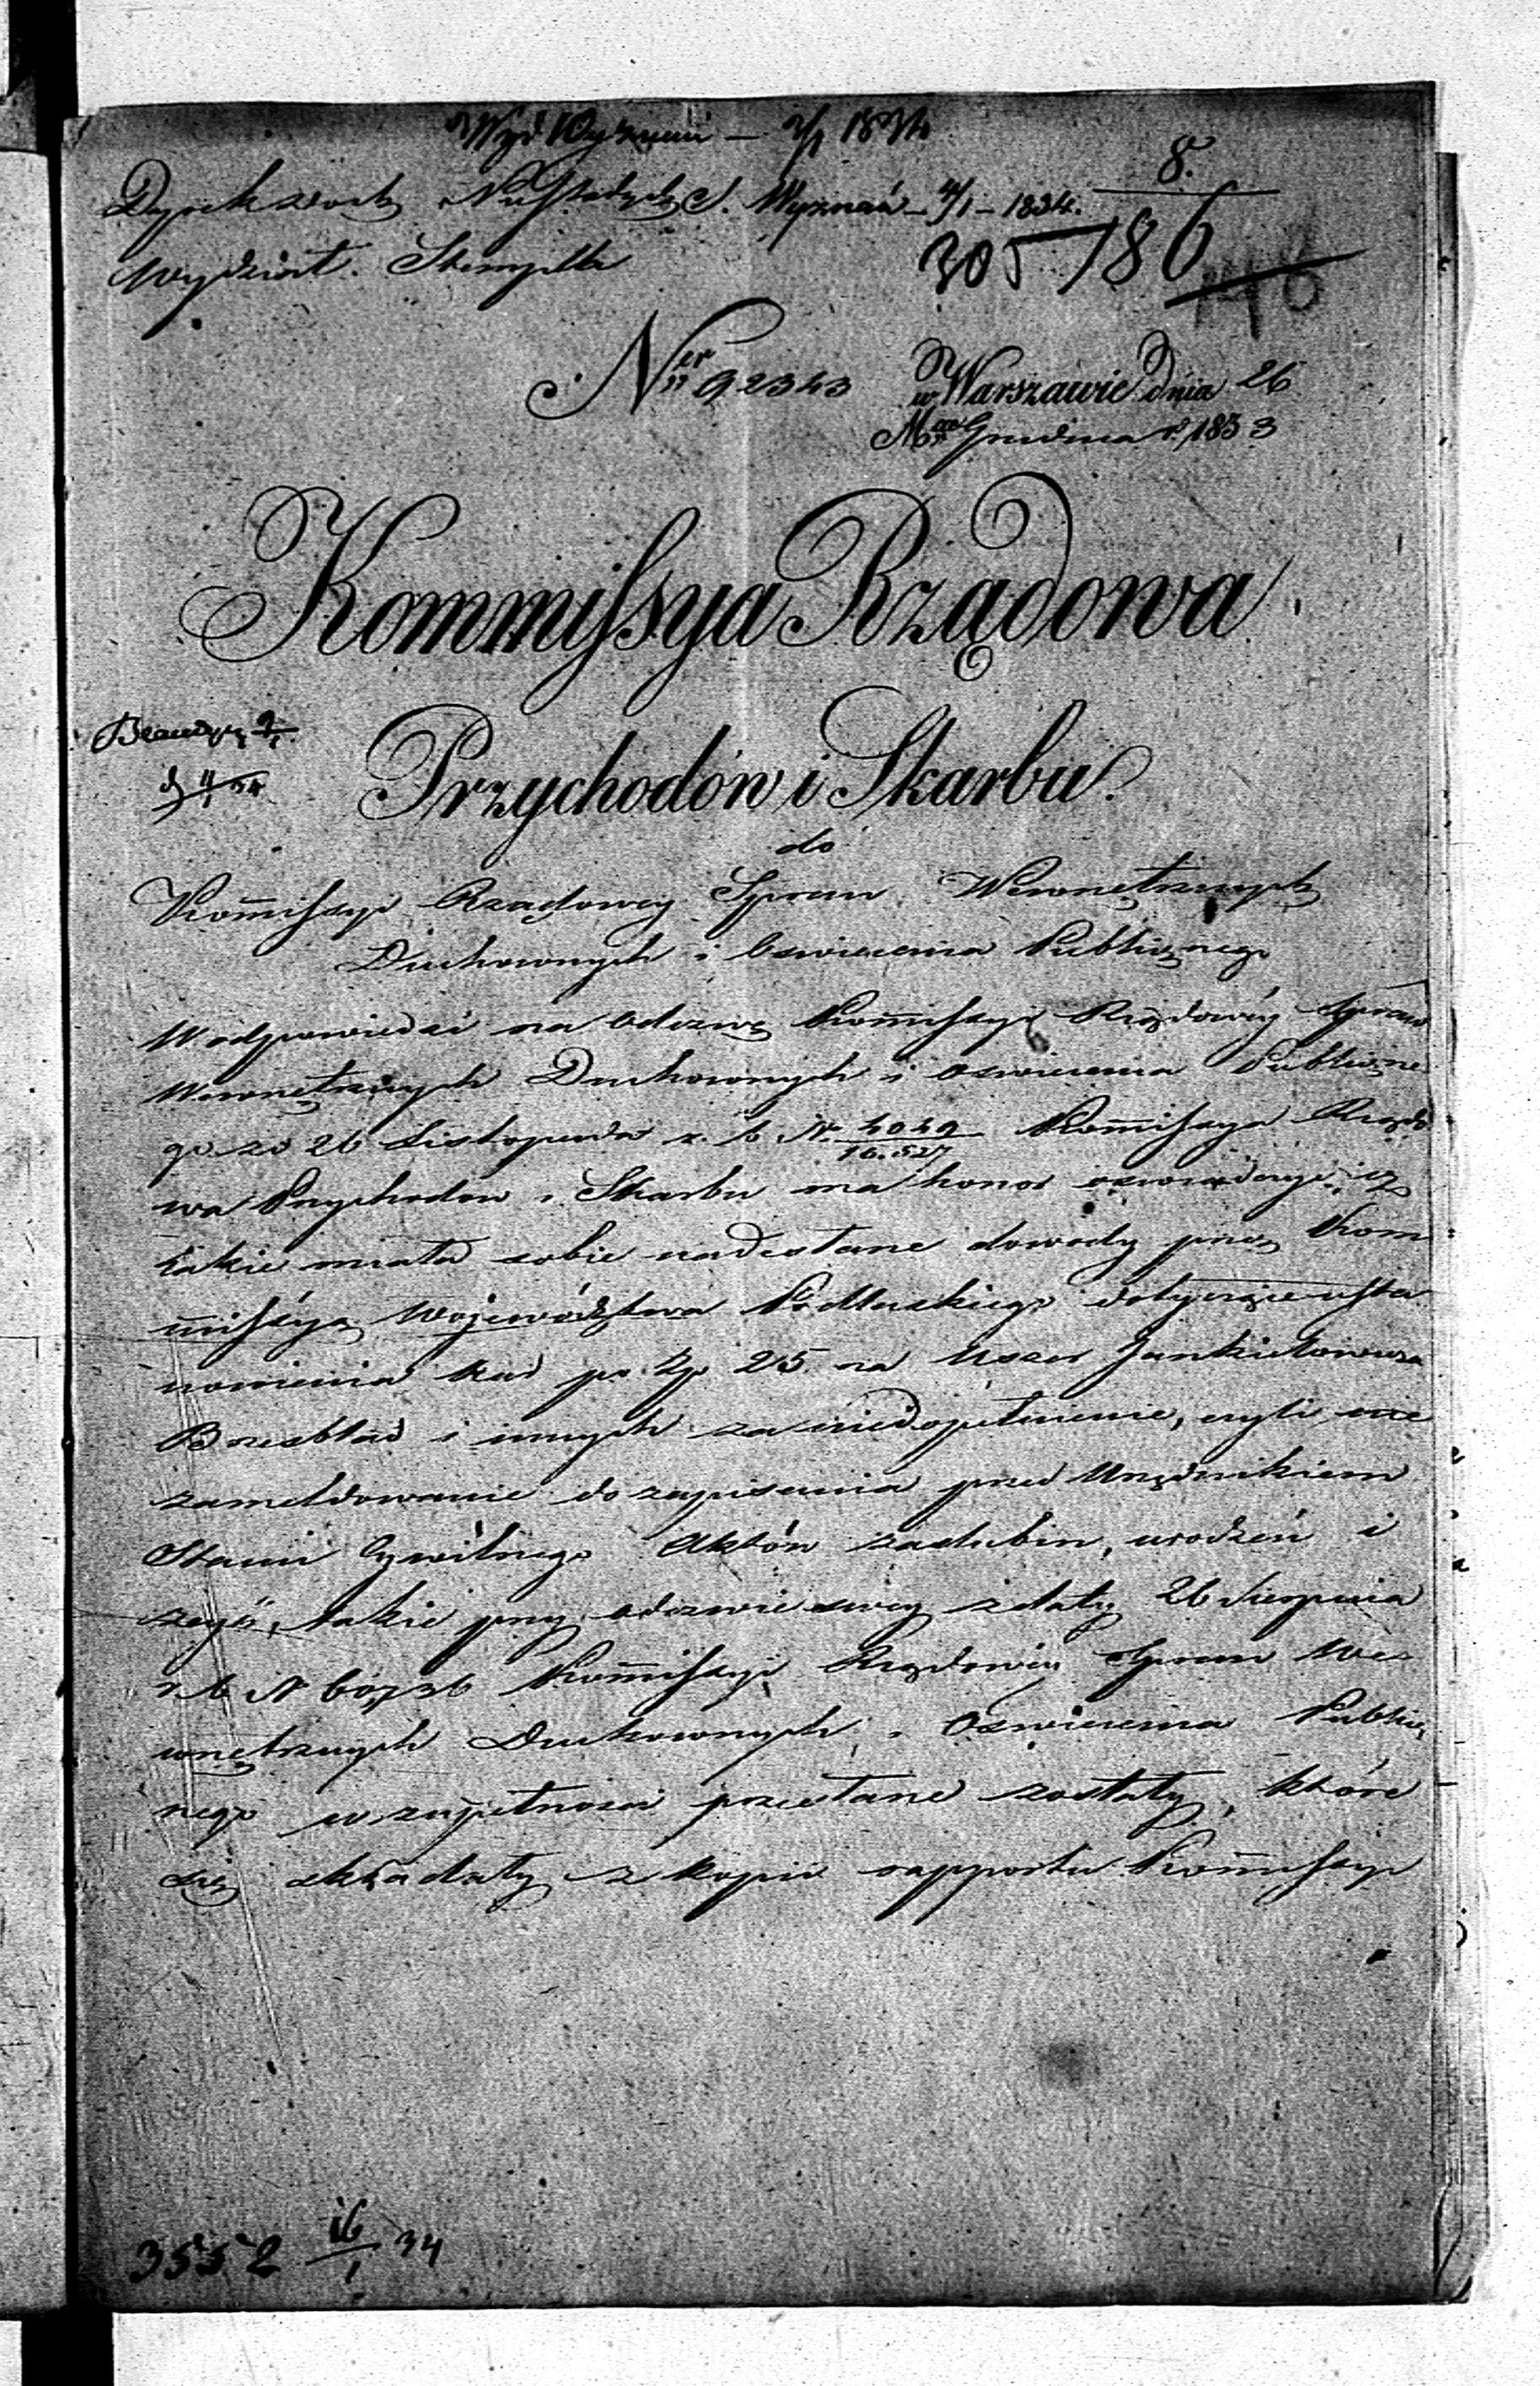 Wyd Wyznań – 2/1 1834
Dyrekcya Niestałych S. Wyznań – 4/1 – 1834.
8.
Wydział. Stempla
305 186
46
Ner 92343 w Warszawie dnia 26
Mca Grudnia r. 1833
Kommissya Rządowa
Przychodów i Skarbu.
do
Kom̄issyi Rządowey Spraw Wewnętrznych
Duchownych i Oświecenia Publicznego
W odpowiedzi na odezwę Kom̄issyi Rządowéy Spraw
Wewnętrznych Duchownych i Oswiecenia Publiczne
go z d 26 Listopada r. b N. 4049/16.527 Kom̄issya Rządo
wa Przychodow i Skarbu ma honor oświadczyć iż
takie miała sobie nadesłane dowody przez Kom
missyą Województwa Podlaskiego dotyczące usta
nowienia kar po Zp 25 na Uszer Jankielowicza
i innych za niedopełnienie, czyli nie
zameldowanie do zapisania przed Urzędnikiem
Stanu Cywilnego Aktów zaślubin, urodzeń i
zeyść, takie przy odezwie swey z daty 26 Sierpnia
r b N 60,736 Kom̄issyi Rządowéy Spraw We
wnętrznych Duchownych i Oświecenia Public
nego w zupełności przesłane zostały, które
się składały z kopii rapportu Kom̄issyi
3552 16/1 34